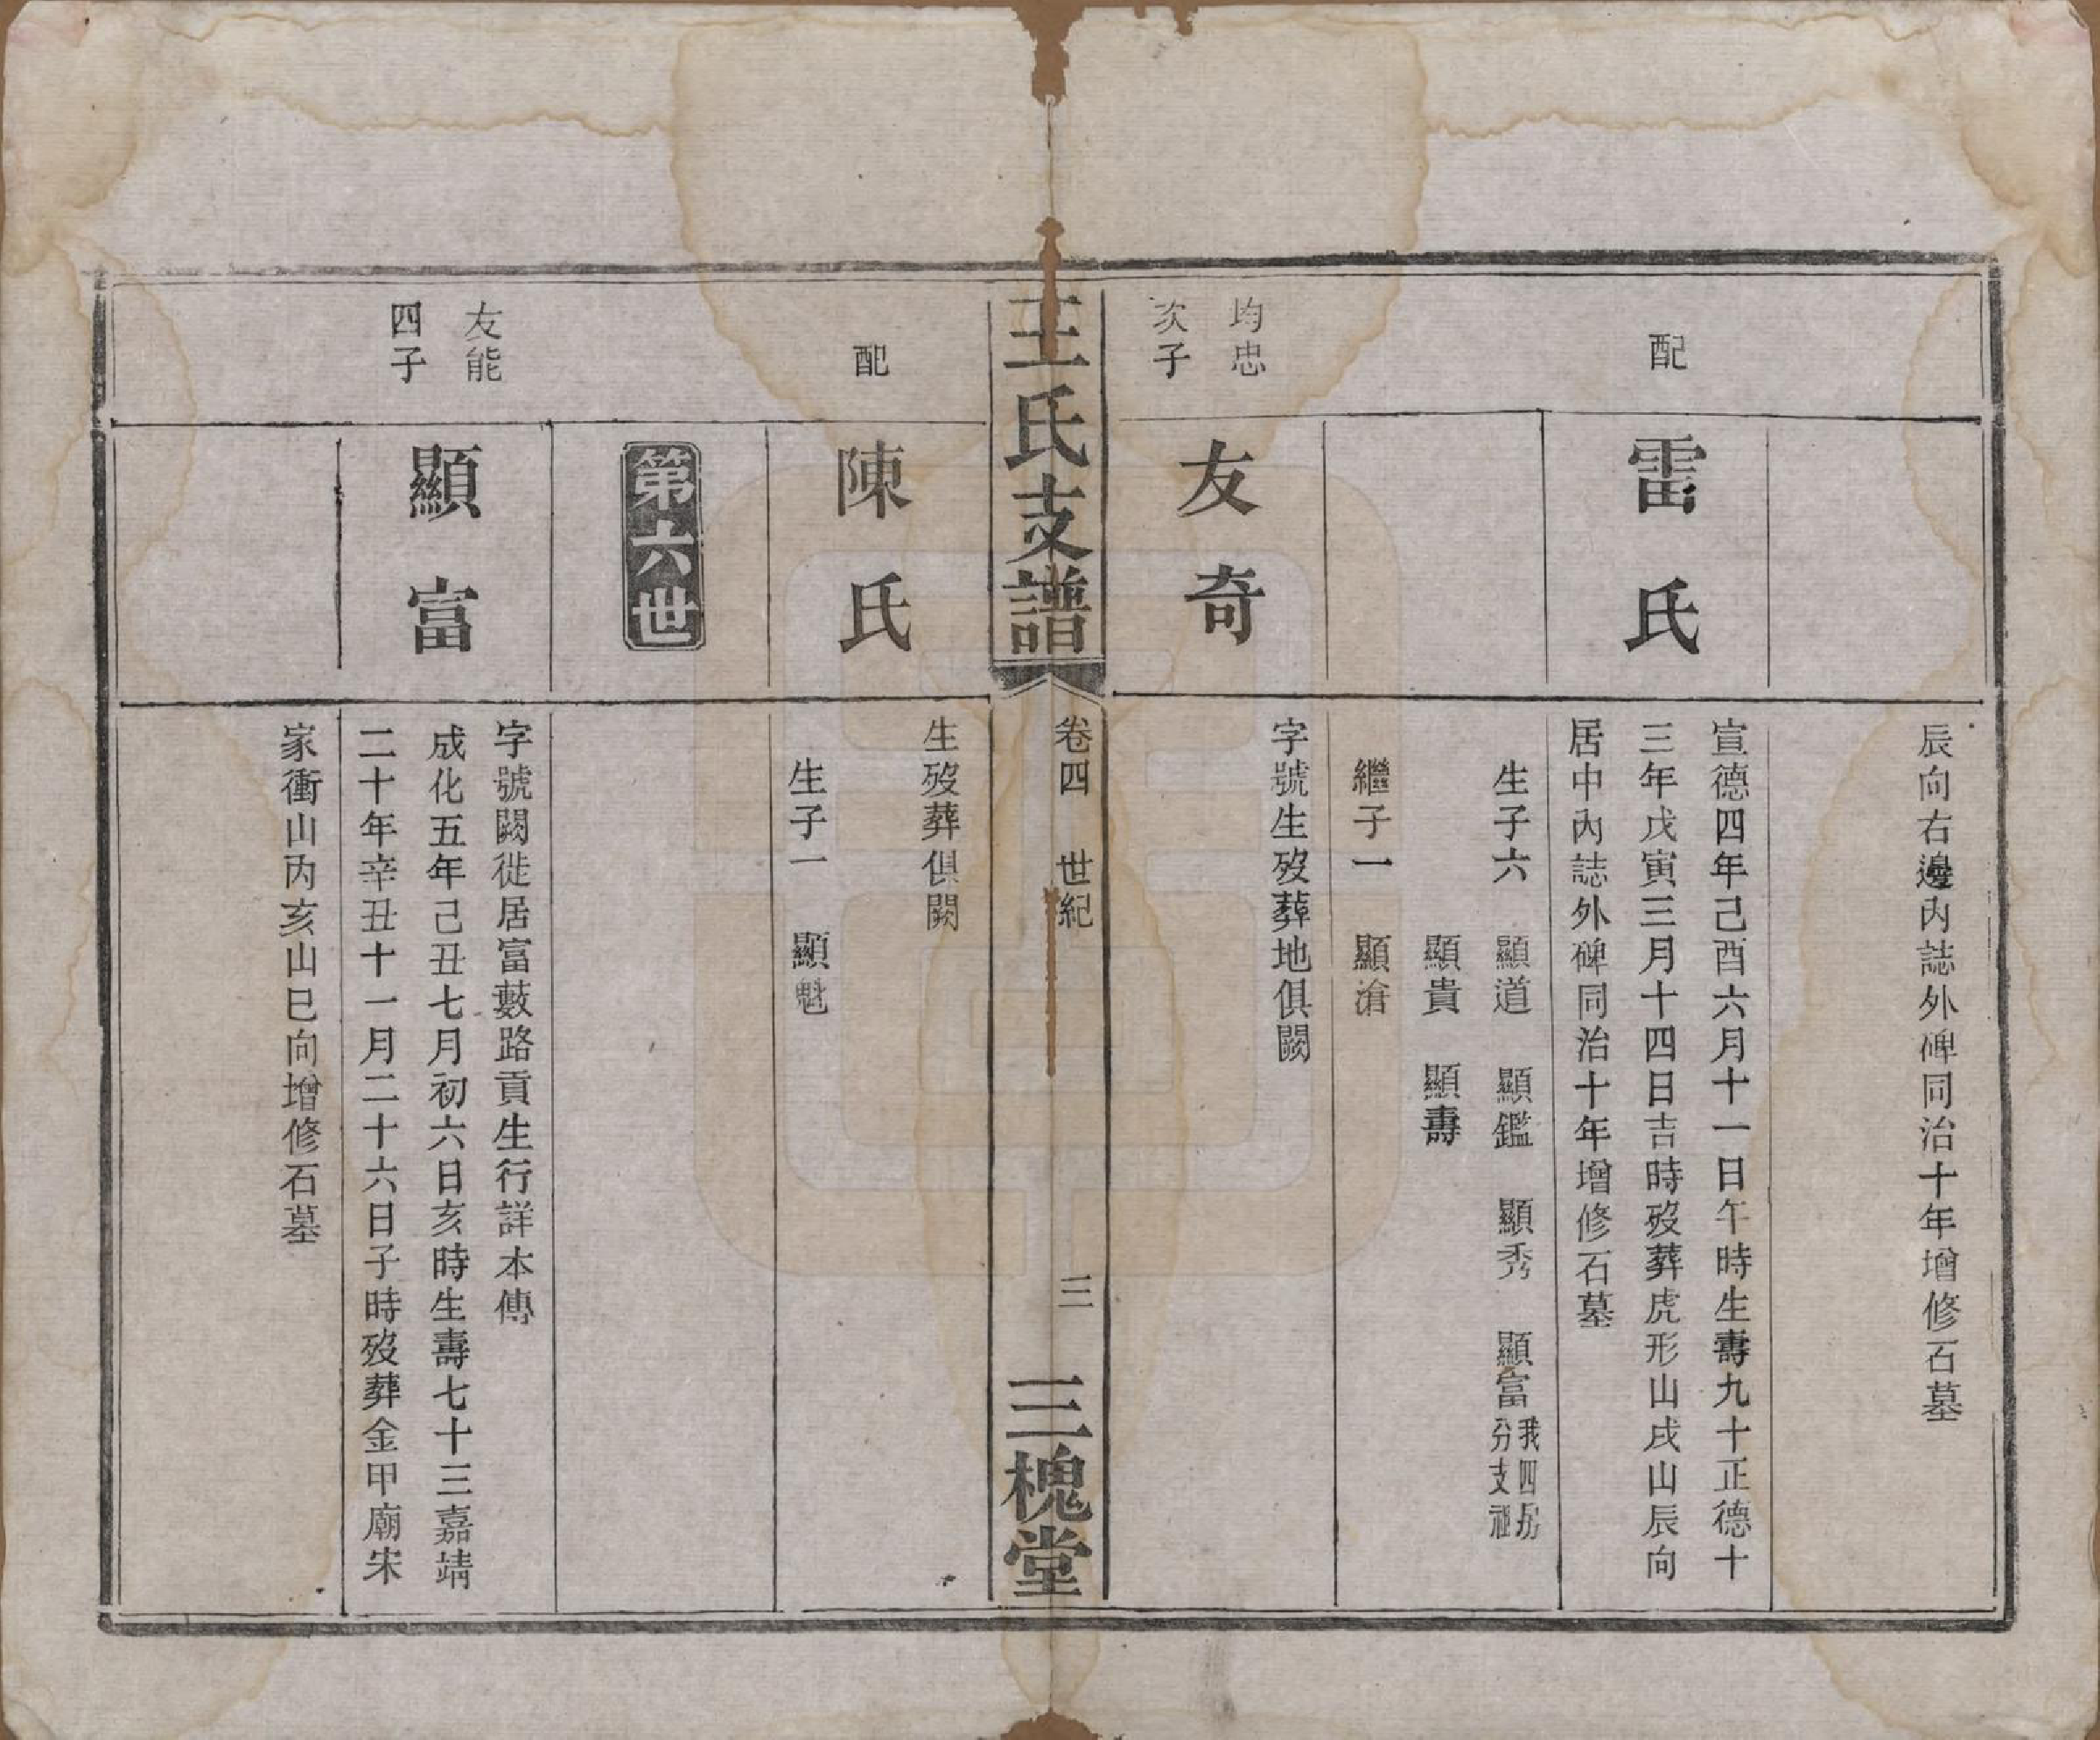 辰向右邊內誌外碑同治十年增修石墓
配
雷氏
宣德四年己酉六月十一日午時生壽九十正德十
三年戊寅三月十四日吉時歿葬虎形山戌山辰向
居中內誌外碑同治十年增修石墓
生子六 顯道 顯鑑 顯秀 顯富 我四房
分支祖
顯貴 顯壽
繼子一 顯滄
均忠
次子
友奇
字號生歿葬地俱闕
王氏支譜
卷四 世紀
三
三槐堂
配
陳氏
生歿葬俱闕
生子一 顯魁
第六世
友能
四子
顯富
字號闕徙居富藪路貢生行詳本傳
成化五年己丑七月初六日亥時生壽七十三嘉靖
二十年辛丑十一月二十六日子時歿葬金甲廟宋
家衝山內亥山巳向增修石墓